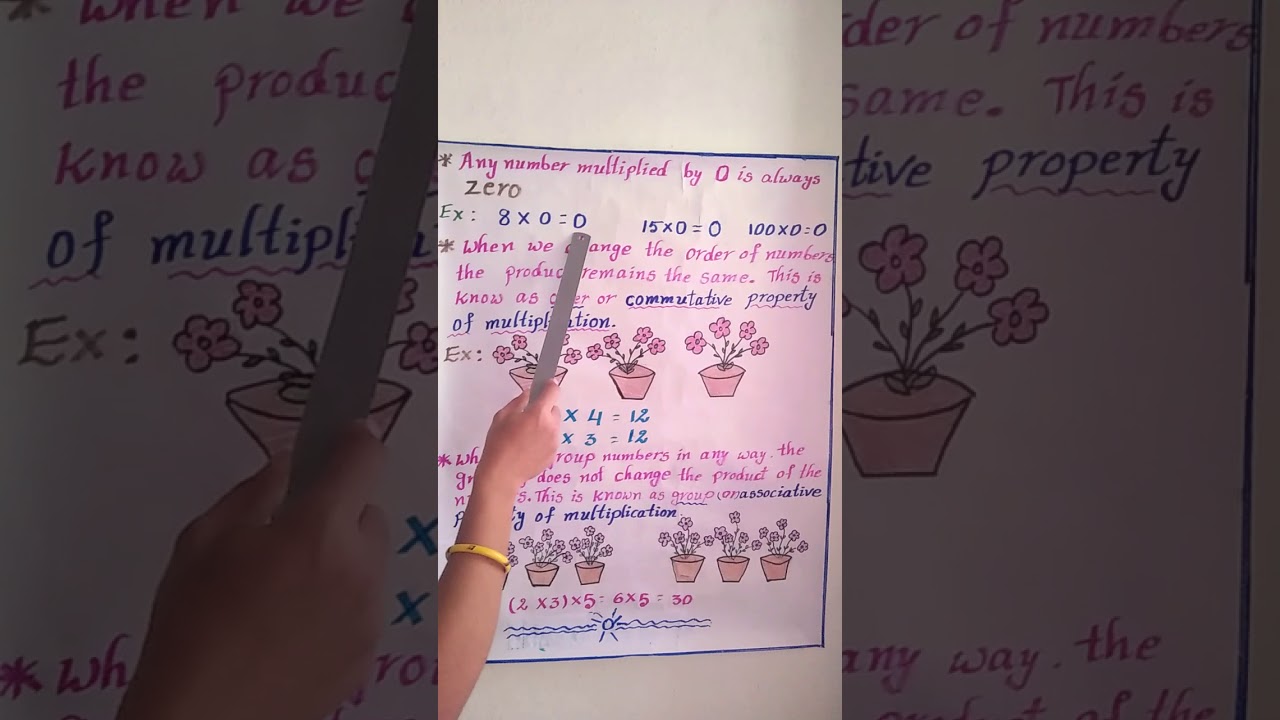 * Any number multiplied by 0 is always
zero
Ex: 8 x 0 = 0 15 x 0 = 0 100 x 0 = 0
* When we change the order of numbers
the product remains the same. This is
know as or commutative property
of multiplication.
Ex:
x 4 = 12
x 3 = 12
* group numbers in any way. the
does not change the product of the
This is known as group (or) associative
of multiplication.
(2 x 3) x 5 = 6 x 5 = 30